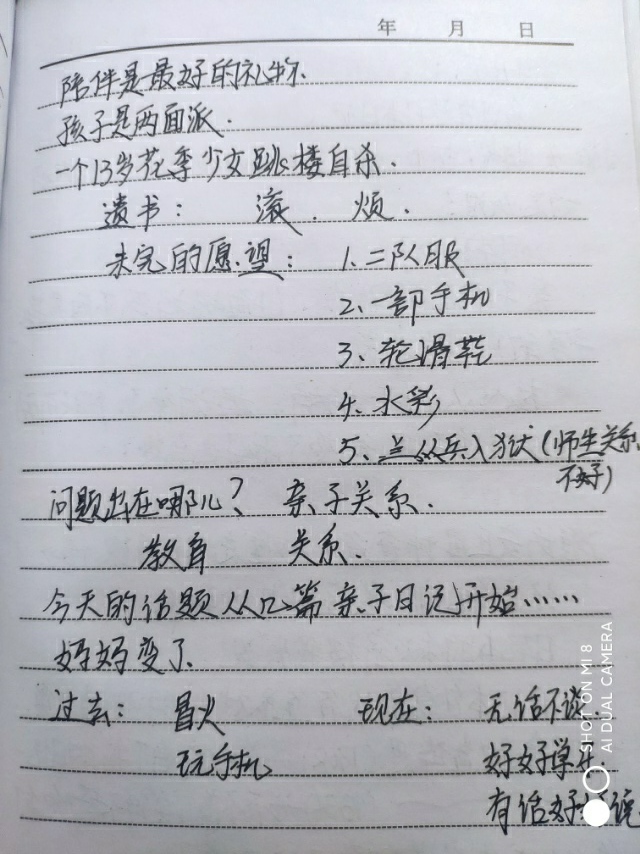 年 月 日
陪伴是最好的礼物.
孩子是两面派.
一个13岁花季少女跳楼自杀.
遗书: 滚. 烦.
未完的愿望: 1.二队服
2、一部手机
3、轮滑鞋
4、水彩
5、兰 入狱(师生关系
不好)
问题出在哪儿? 亲子关系.
教育 关系.
今天的话题从 篇亲子日记开始……
妈妈变了
过去: 冒火 现在: 无话不谈.
玩手机 好好学
有话好 说
SHOT ON MI 8
AI DUAL CAMERA